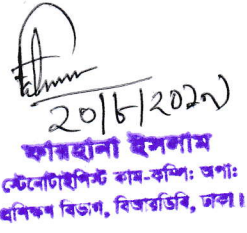 ২০/৮/২০২৩
ফারহানা ইসলাম
স্টেনোটাইপিস্ট কাম-কম্পিঃ অপাঃ
প্রশিক্ষণ বিভাগ, বিআরডিবি, ঢাকা।